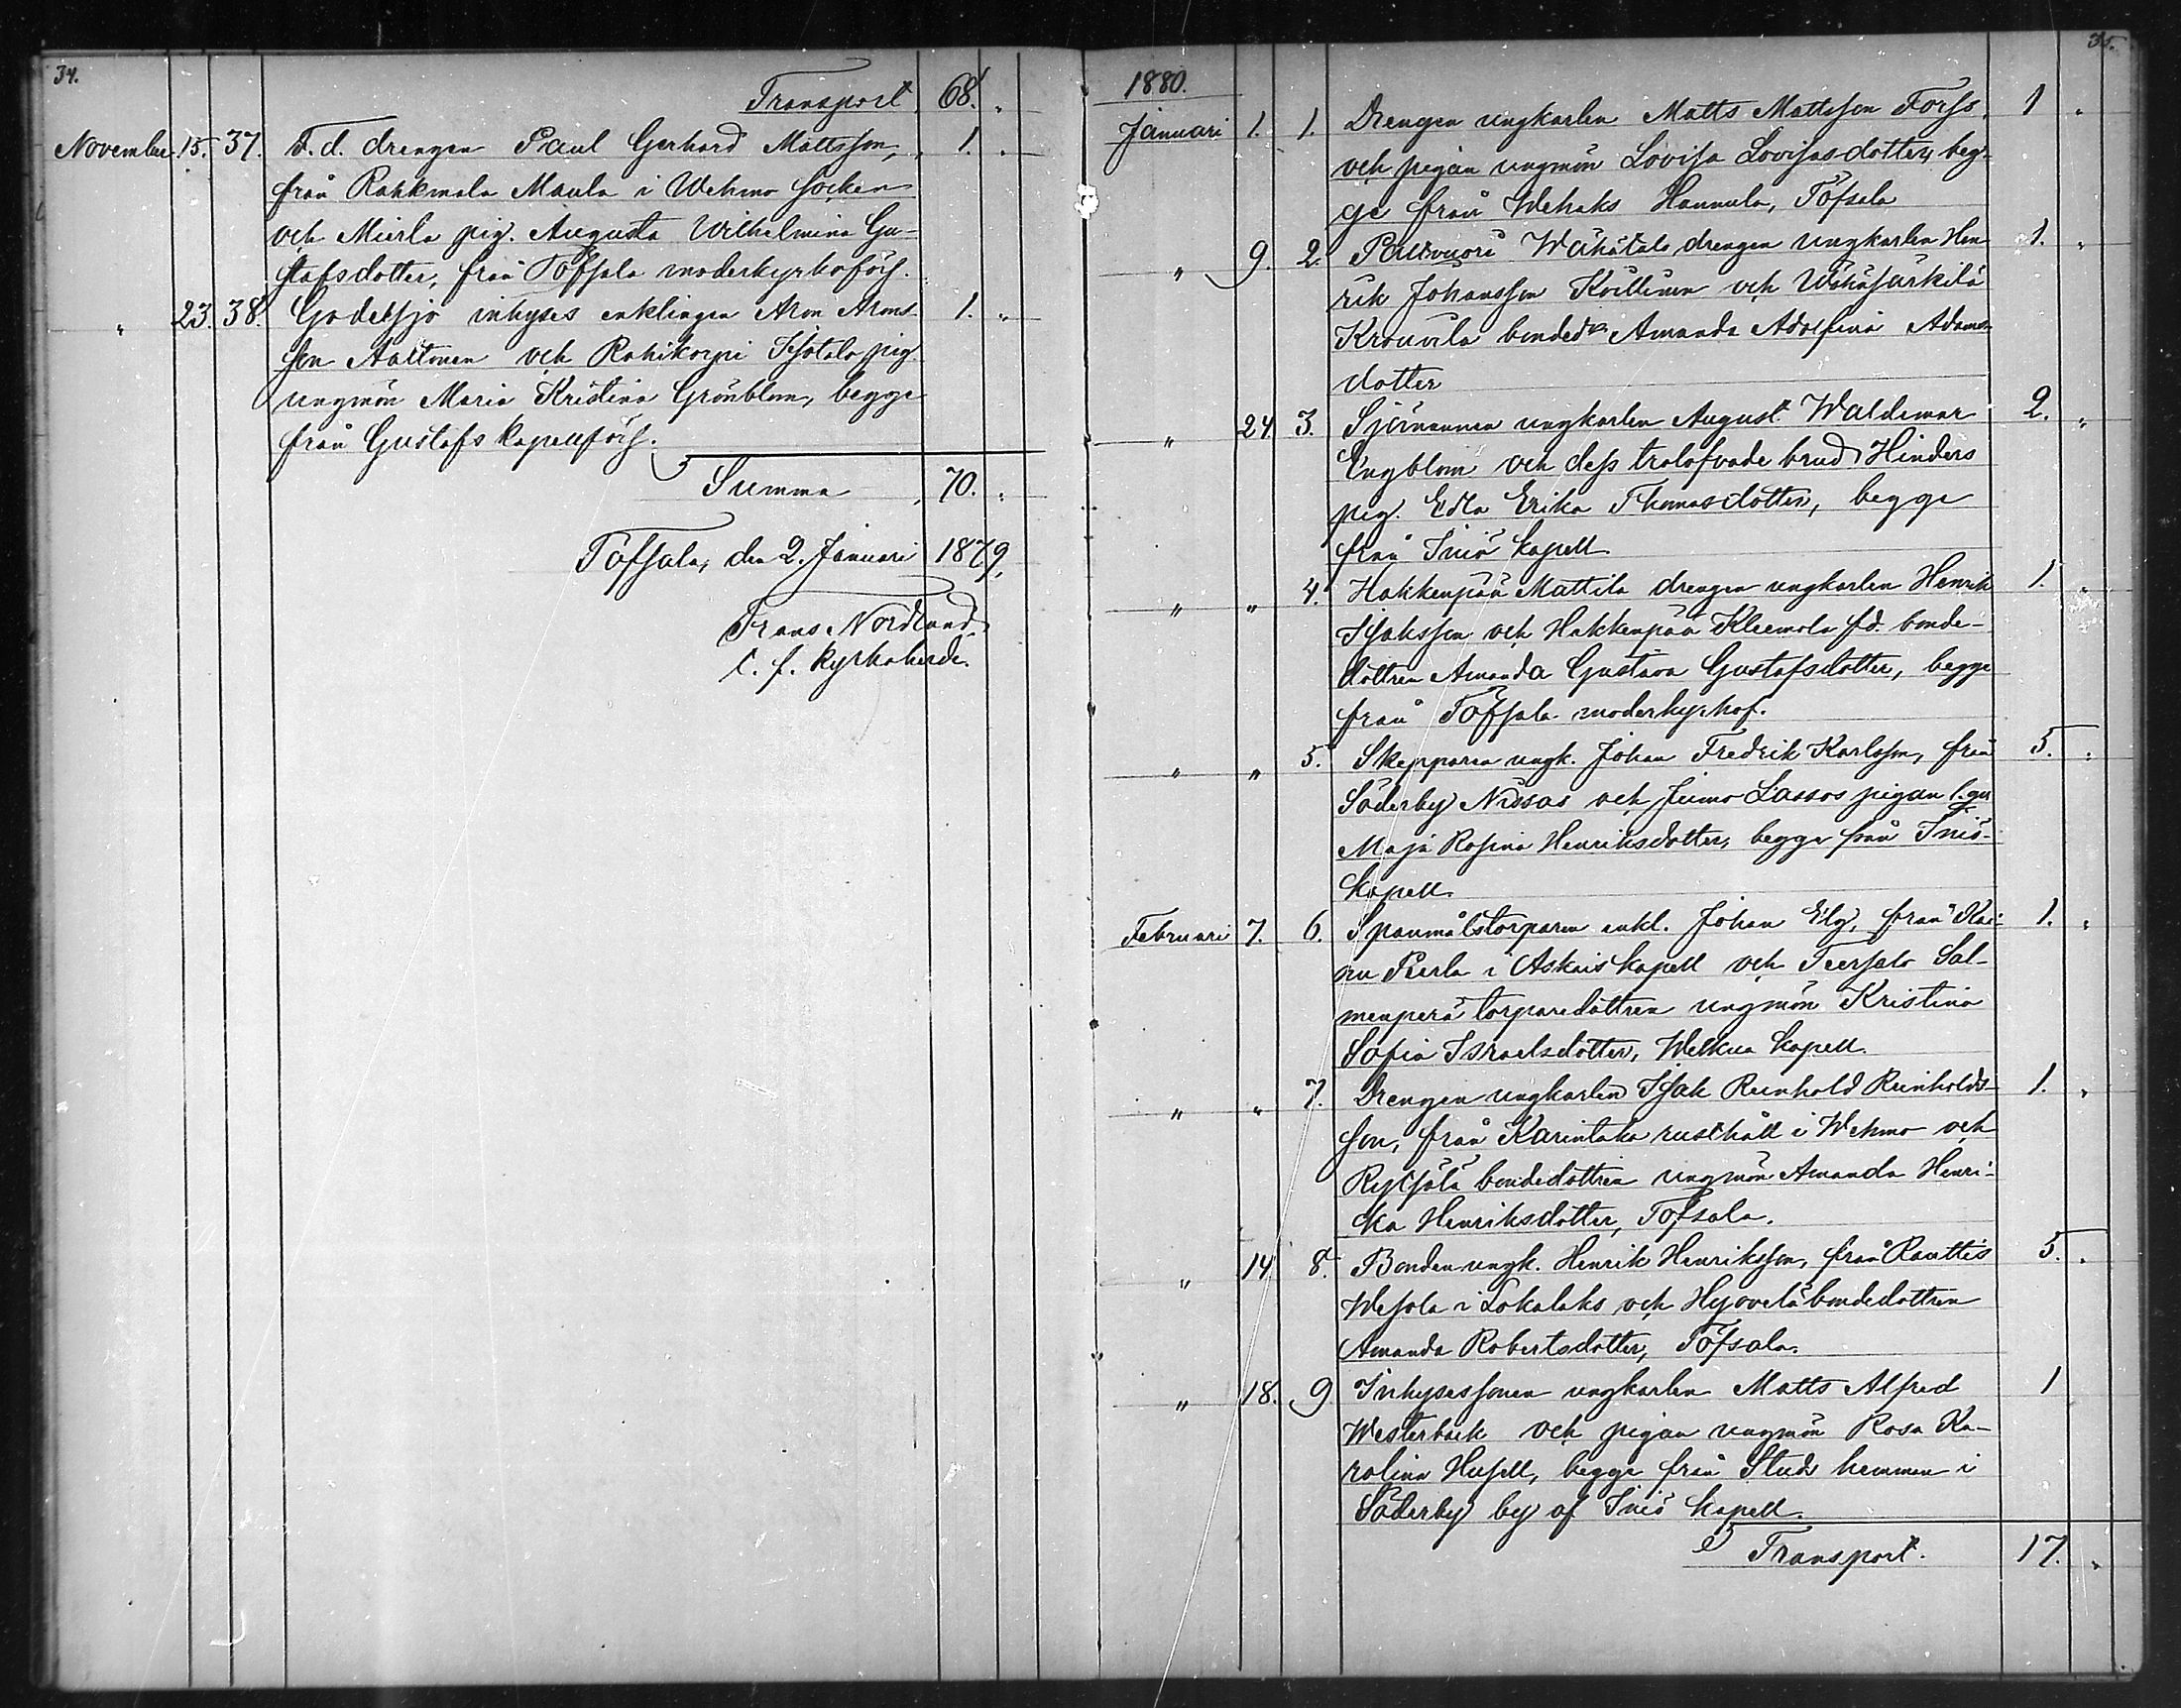 34.
Transport 68. "
November 15. 37. F. d. drengen Paul Gerhard Mattsson, 1. "
från Rahkmala Maula i Wehmo socken
och Mierla pig. Augusta Wilhelmina Gu-
stafsdotter, från Töfsala moderkyrkoförs.
" 23. 38. Godelsjö inhyses enklingen Aron Arons- 1. "
son Aaltonen och Rahikorpi Isotalo pig.
ungmön Maria Kristina Grönblom, begge
från Gustafs kapellförs.
Summa 70. "
Töfsala, den 2. Januari 1879,
Frans Nordlund
t. f. kyrkoherde.
35.
1880.
Januari 1. 1. Drengen ungkarlen Matts Mattsson Forss, 1 "
och pigan ungmön Lovisa Lovisasdotter, beg-
ge från Wehaks Hannula, Töfsala
" 9. 2. Palovuori Wähätalo drengen ungkarlen Hen- 1. "
rik Johansson Koillinen och Wähäsärkilä
Krouvila bonded:r Amanda Adolfina Adams-
dotter
" 24 3. Sjömannen ungkarlen August Waldemar 2. "
Engblom och dess trolofvade brud Hinders
pig. Edla Erika Thomasdotter, begge
från Iniö kapell
" " 4. Hakkenpää Mattila drengen ungkarlen Henrik 1. "
Isaksson och Hakkenpää Kleemola f.d. bonde-
dottren Amanda Gustava Gustafsdotter, begge
från Töfsala moderkyrkof.
" " 5. Skepparen ungk. Johan Fredrik Karlsson, från 5. "
Söderby Nissas och Jumo Lassas pigan
Maja Rosina Henriksdotter, begge från Iniö-
kapell.
Februari 7. 6. Spanmålstorparen enkl. Johan Elg, från Kai- 1. "
nu Pierla i Askais kapell och Teersalo Sal-
menperä torparedottren ungmön Kristina
Sofia Israelsdotter, Welkua kapell.
" " 7. Drengen ungkarlen Isak Reinhold Reinholds- 1. "
son, från Karintaka rusthåll i Wehmo och
Ryłsälä bondedottren ungmön Amanda Henri-
ka Henriksdotter, Töfsala.
" 14 8. Bonden ungk. Henrik Henriksson, från Rauttis 5. "
Wesola i Lokalaks och Hyovelä bondedottren
Amanda Robertsdotter, Töfsala.
" 18. 9 Inhysessonen ungkarlen Matts Alfred 1
Westerback och pigan ungmön Rosa Ka-
rolina Husell, begge från Studs hemman i
Söderby by af Iniö kapell.
Transport. 17. "